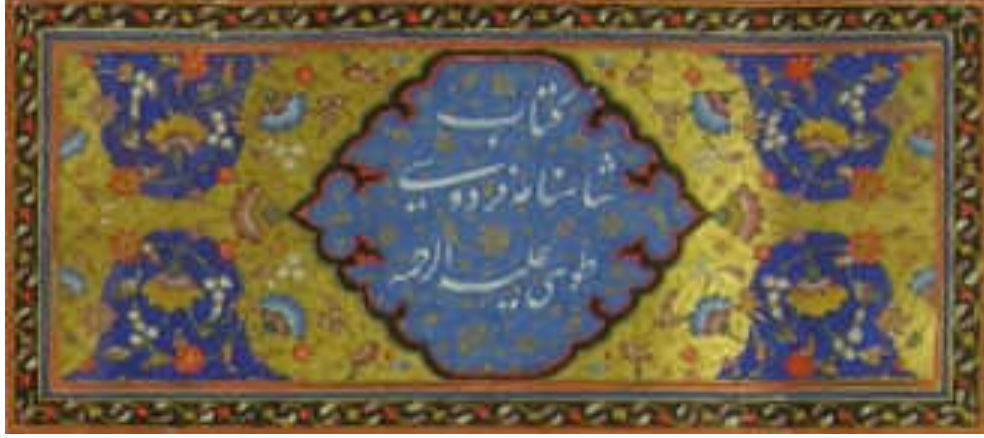 کتاب
شاهنامه فردوسی
طوسی علیه الرحمه